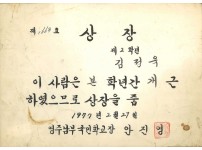 제 호
상장
제2학년
김정욱
이 사람은 본 학년간 개근
하였으므로 상장을 줌
1977년 2월 27일
남부국민학교장 안진